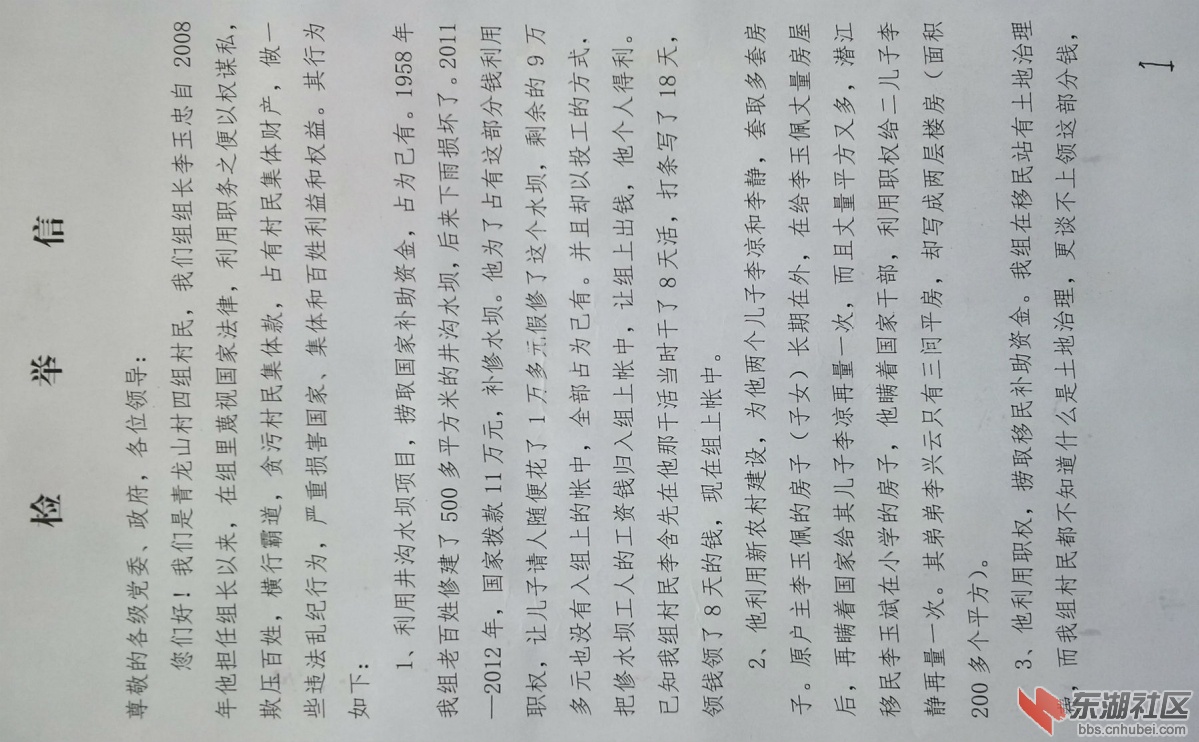 检 举 信
尊敬的各级党委、政府，各位领导：
您们好！我们是青龙山村四组村民，我们组长李玉忠自 2008
年他担任组长以来，在组里蔑视国家法律，利用职务之便以权谋私，
欺压百姓，横行霸道，贪污村民集体款，占有村民集体财产，做一
些违法乱纪行为，严重损害国家、集体和百姓利益和权益。其行为
如下：
1、利用井沟水坝项目，捞取国家补助资金，占为己有。1958 年
我组老百姓修建了 500 多平方米的井沟水坝，后来下雨损坏了。2011
—2012 年，国家拨款 11 万元，补修水坝。他为了占有这部分钱利用
职权，让儿子请人随便花了 1 万多元假修了这个水坝，剩余的 9 万
多元也没有入组上的帐中，全部占为己有。并且却以投工的方式，
把修水坝工人的工资钱归入组上帐中，让组上出钱，他个人得利。
已知我组村民李含先在他那干活当时干了 8 天活，打条写了 18 天，
领钱领了 8 天的钱，现在组上帐中。
2、他利用新农村建设，为他两个儿子李凉和李静，套取多套房
子。原户主李玉佩的房子（子女）长期在外，在给李玉佩丈量房屋
后，再瞒着国家给其儿子李凉再量一次，而且丈量平方又多，潜江
移民李玉斌在小学的房子，他瞒着国家干部，利用职权给二儿子李
静再量一次。其弟弟李兴云只有三问平房，却写成两层楼房（面积
200 多个平方）。
3、他利用职权，捞取移民补助资金。我组在移民站有土地治理
，而我组村民都不知道什么是土地治理，更谈不上领这部分钱，
1
东湖社区
bbs.cnhubei.com